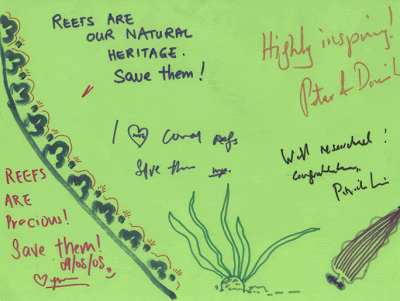 REEFS ARE
OUR NATURAL
HERITAGE.
Save them!
Highly inspiring!
Peter &
I Coral Reefs
Save them
Well researched!
Congratulations,
REEFS
ARE
Precious!
Save them!
09/05/05